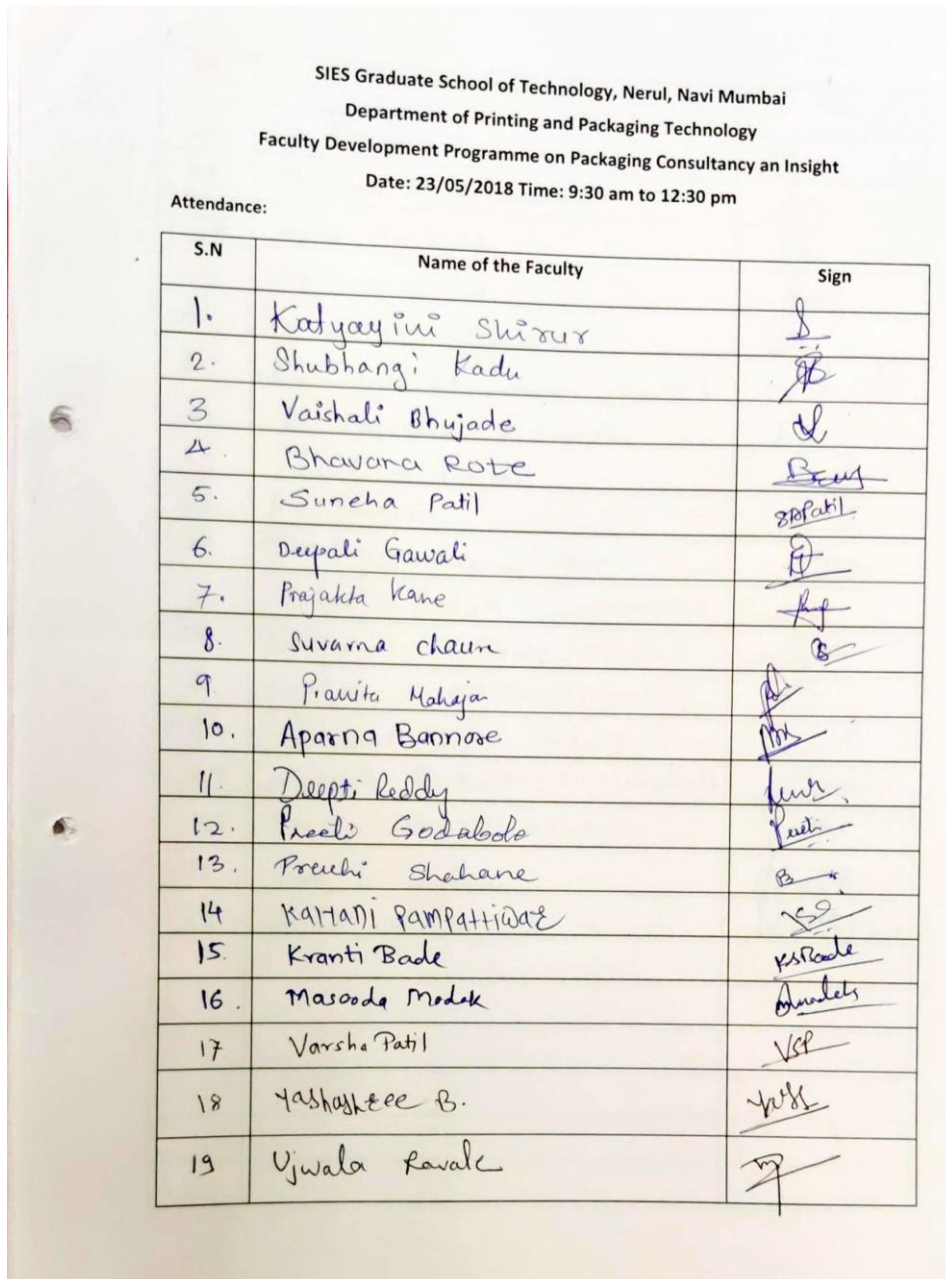 SIES Graduate School of Technology, Nerul, Navi Mumbai
Department of Printing and Packaging Technology
Faculty Development Programme on Packaging Consultancy an Insight
Date: 23/05/2018 Time: 9:30 am to 12:30 pm
Attendance:
S.N Name of the Faculty Sign
1. Katyayini Shirur
2. Shubhangi Kadu
3 Vaishali Bhujade
4. Bhavana Rote
5. Suneha Patil SRPatil
6. Deepali Gawali
7. Prajakta Kane
8. Suvarna Chaure
9 Pranita Mahajan
10. Aparna Bannore
11. Deepti Reddy
12. Preeti Godabole Preeti
13. Prachi Shahane
14 Kalyani Pampattiwar
15. Kranti Bade KSBade
16. Masooda Modak
17 Varsha Patil VSP
18 Yashashree B.
19 Ujwala Ravale